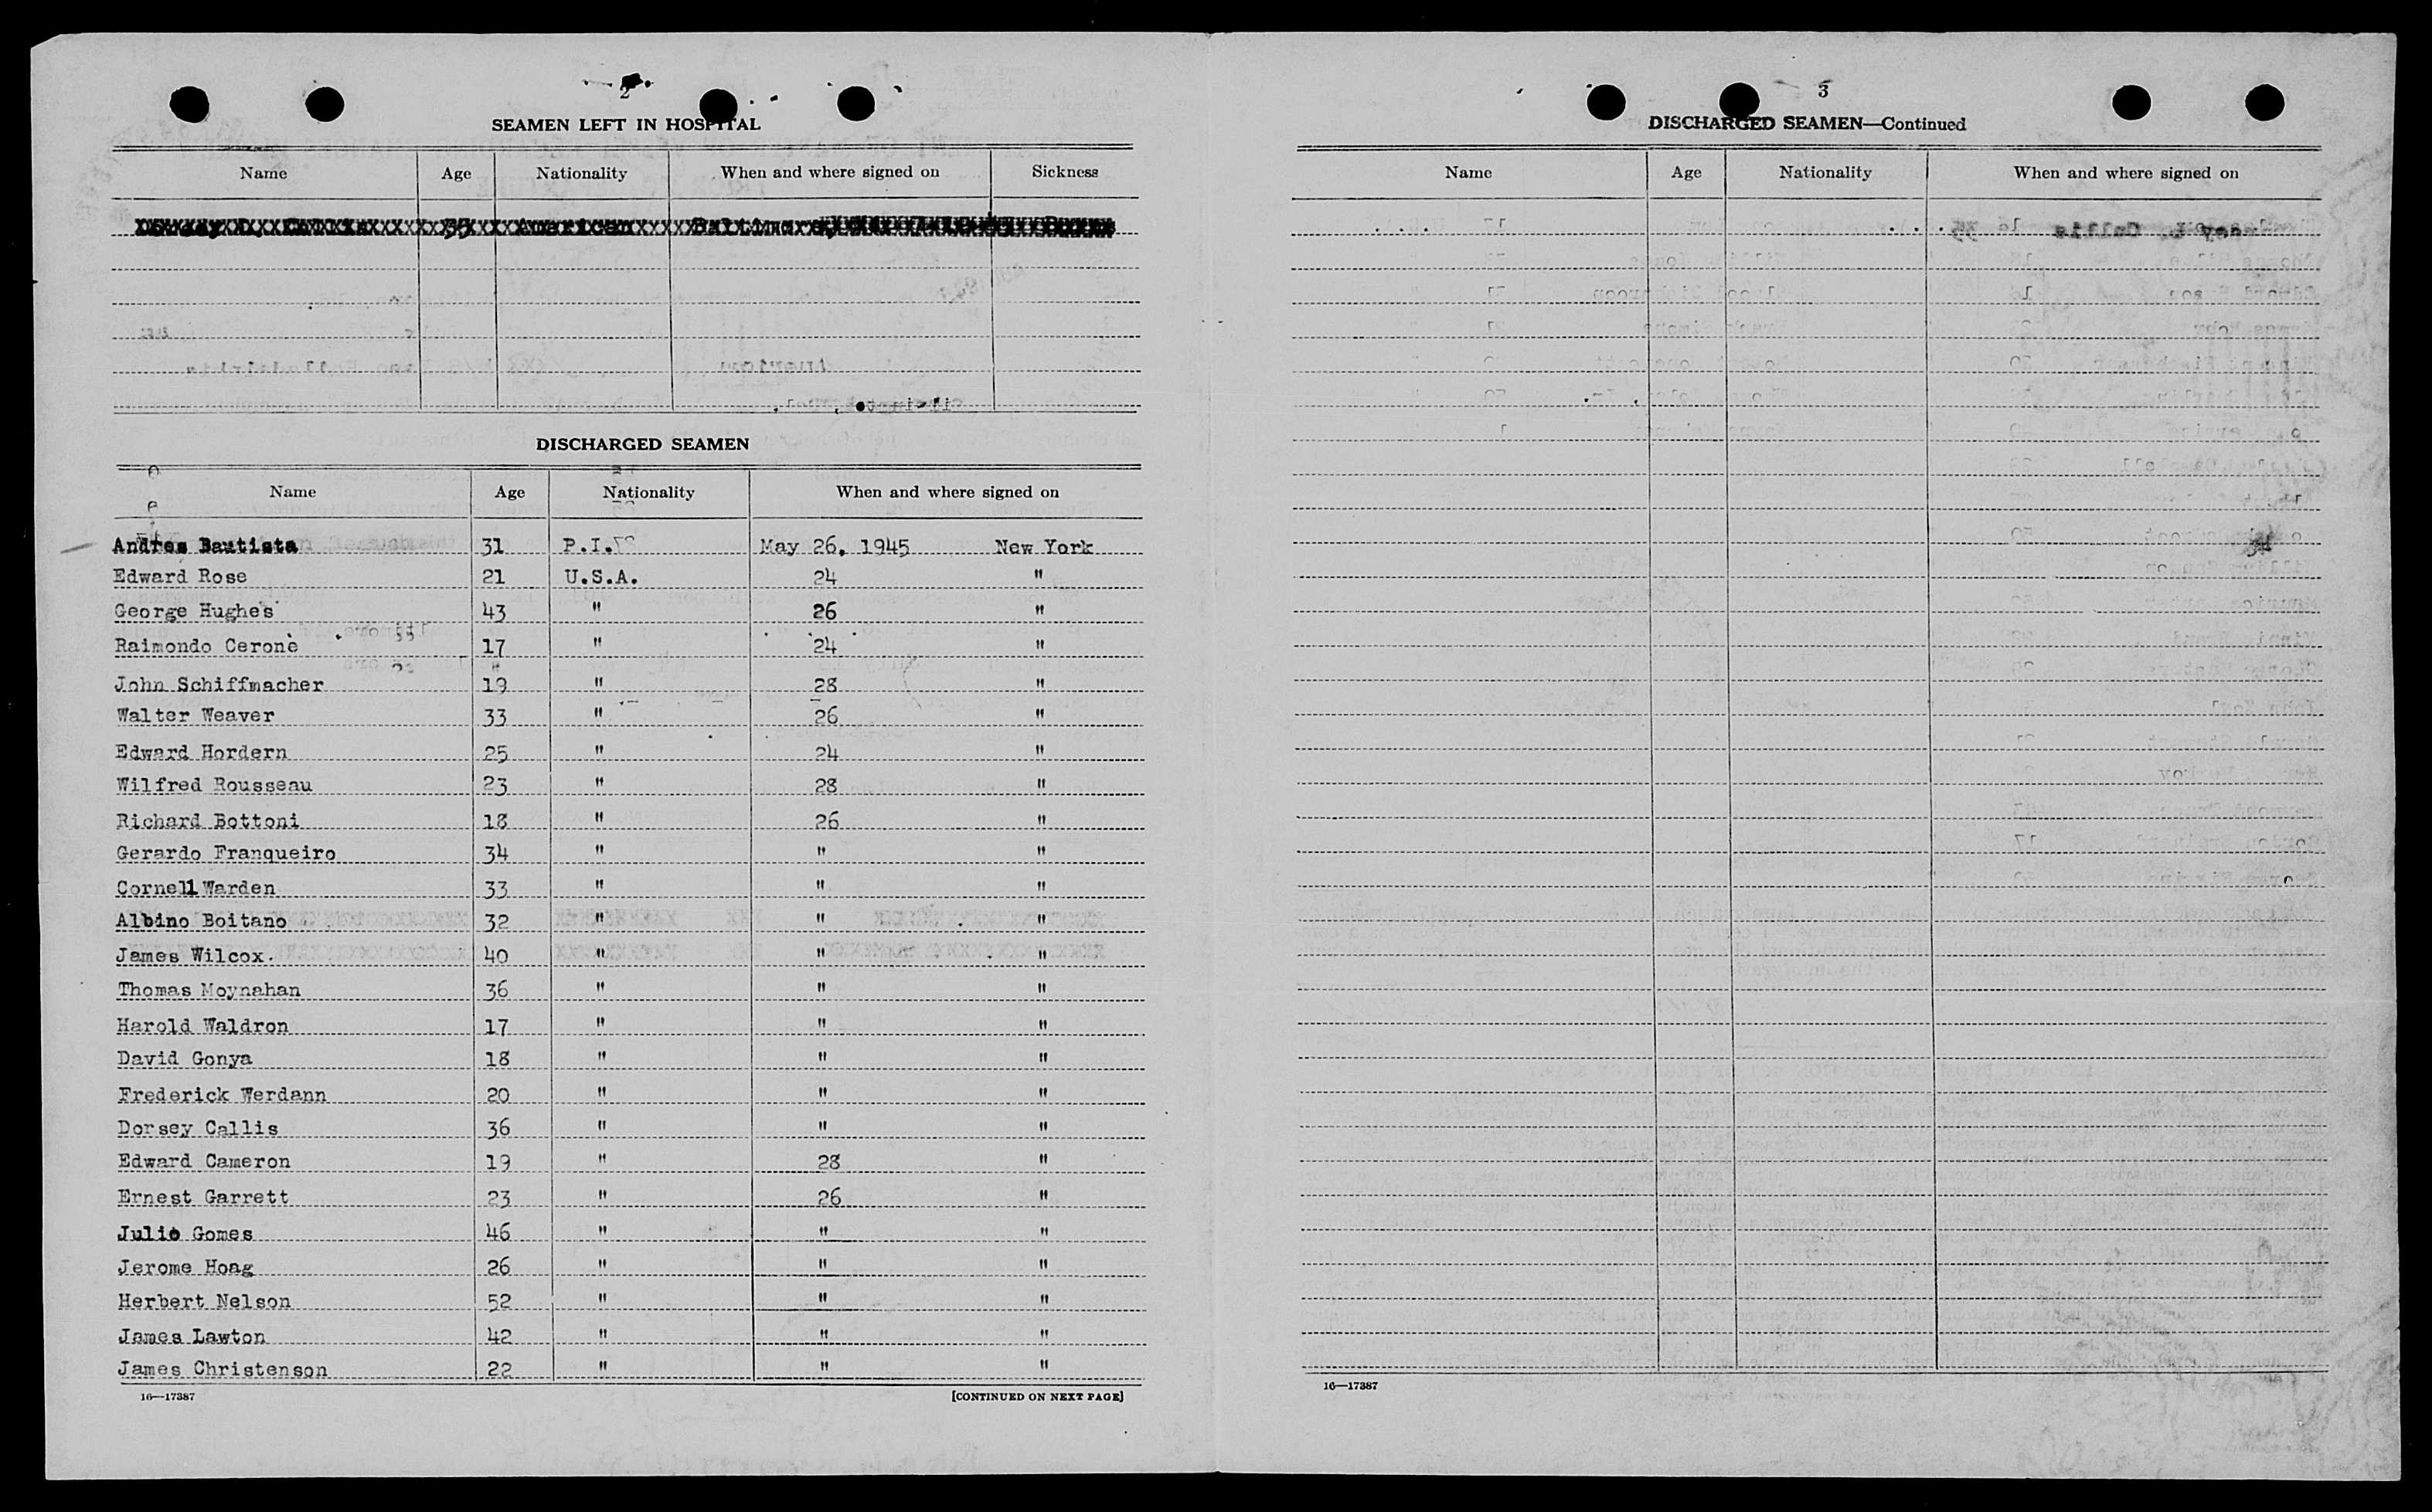 2
SEAMEN LEFT IN HOSPITAL
Name Age Nationality When and where signed on Sickness
35 American Baltimore
DISCHARGED SEAMEN
Name Age Nationality When and where signed on
Andres Bautista 31 P.I. May 26, 1945 New York
Edward Rose 21 U.S.A. 24 "
George Hughes 43 " 26 "
Raimondo Cerone 17 " 24 "
John Schiffmacher 19 " 28 "
Walter Weaver 33 " 26 "
Edward Hordern 25 " 24 "
Wilfred Rousseau 23 " 28 "
Richard Bottoni 18 " 26 "
Gerardo Franqueiro 34 " " "
Cornell Warden 33 " " "
Albino Boitano 32 " " "
James Wilcox. 40 " " "
Thomas Moynahan 36 " " "
Harold Waldron 17 " " "
David Gonya 18 " " "
Frederick Werdann 20 " " "
Dorsey Callis 36 " " "
Edward Cameron 19 " 28 "
Ernest Garrett 23 " 26 "
Julio Gomes 46 " " "
Jerome Hoag 26 " " "
Herbert Nelson 52 " " "
James Lawton 42 " " "
James Christenson 22 " " "
16—17387 [CONTINUED ON NEXT PAGE]
3
DISCHARGED SEAMEN—Continued
Name Age Nationality When and where signed on
16—17387